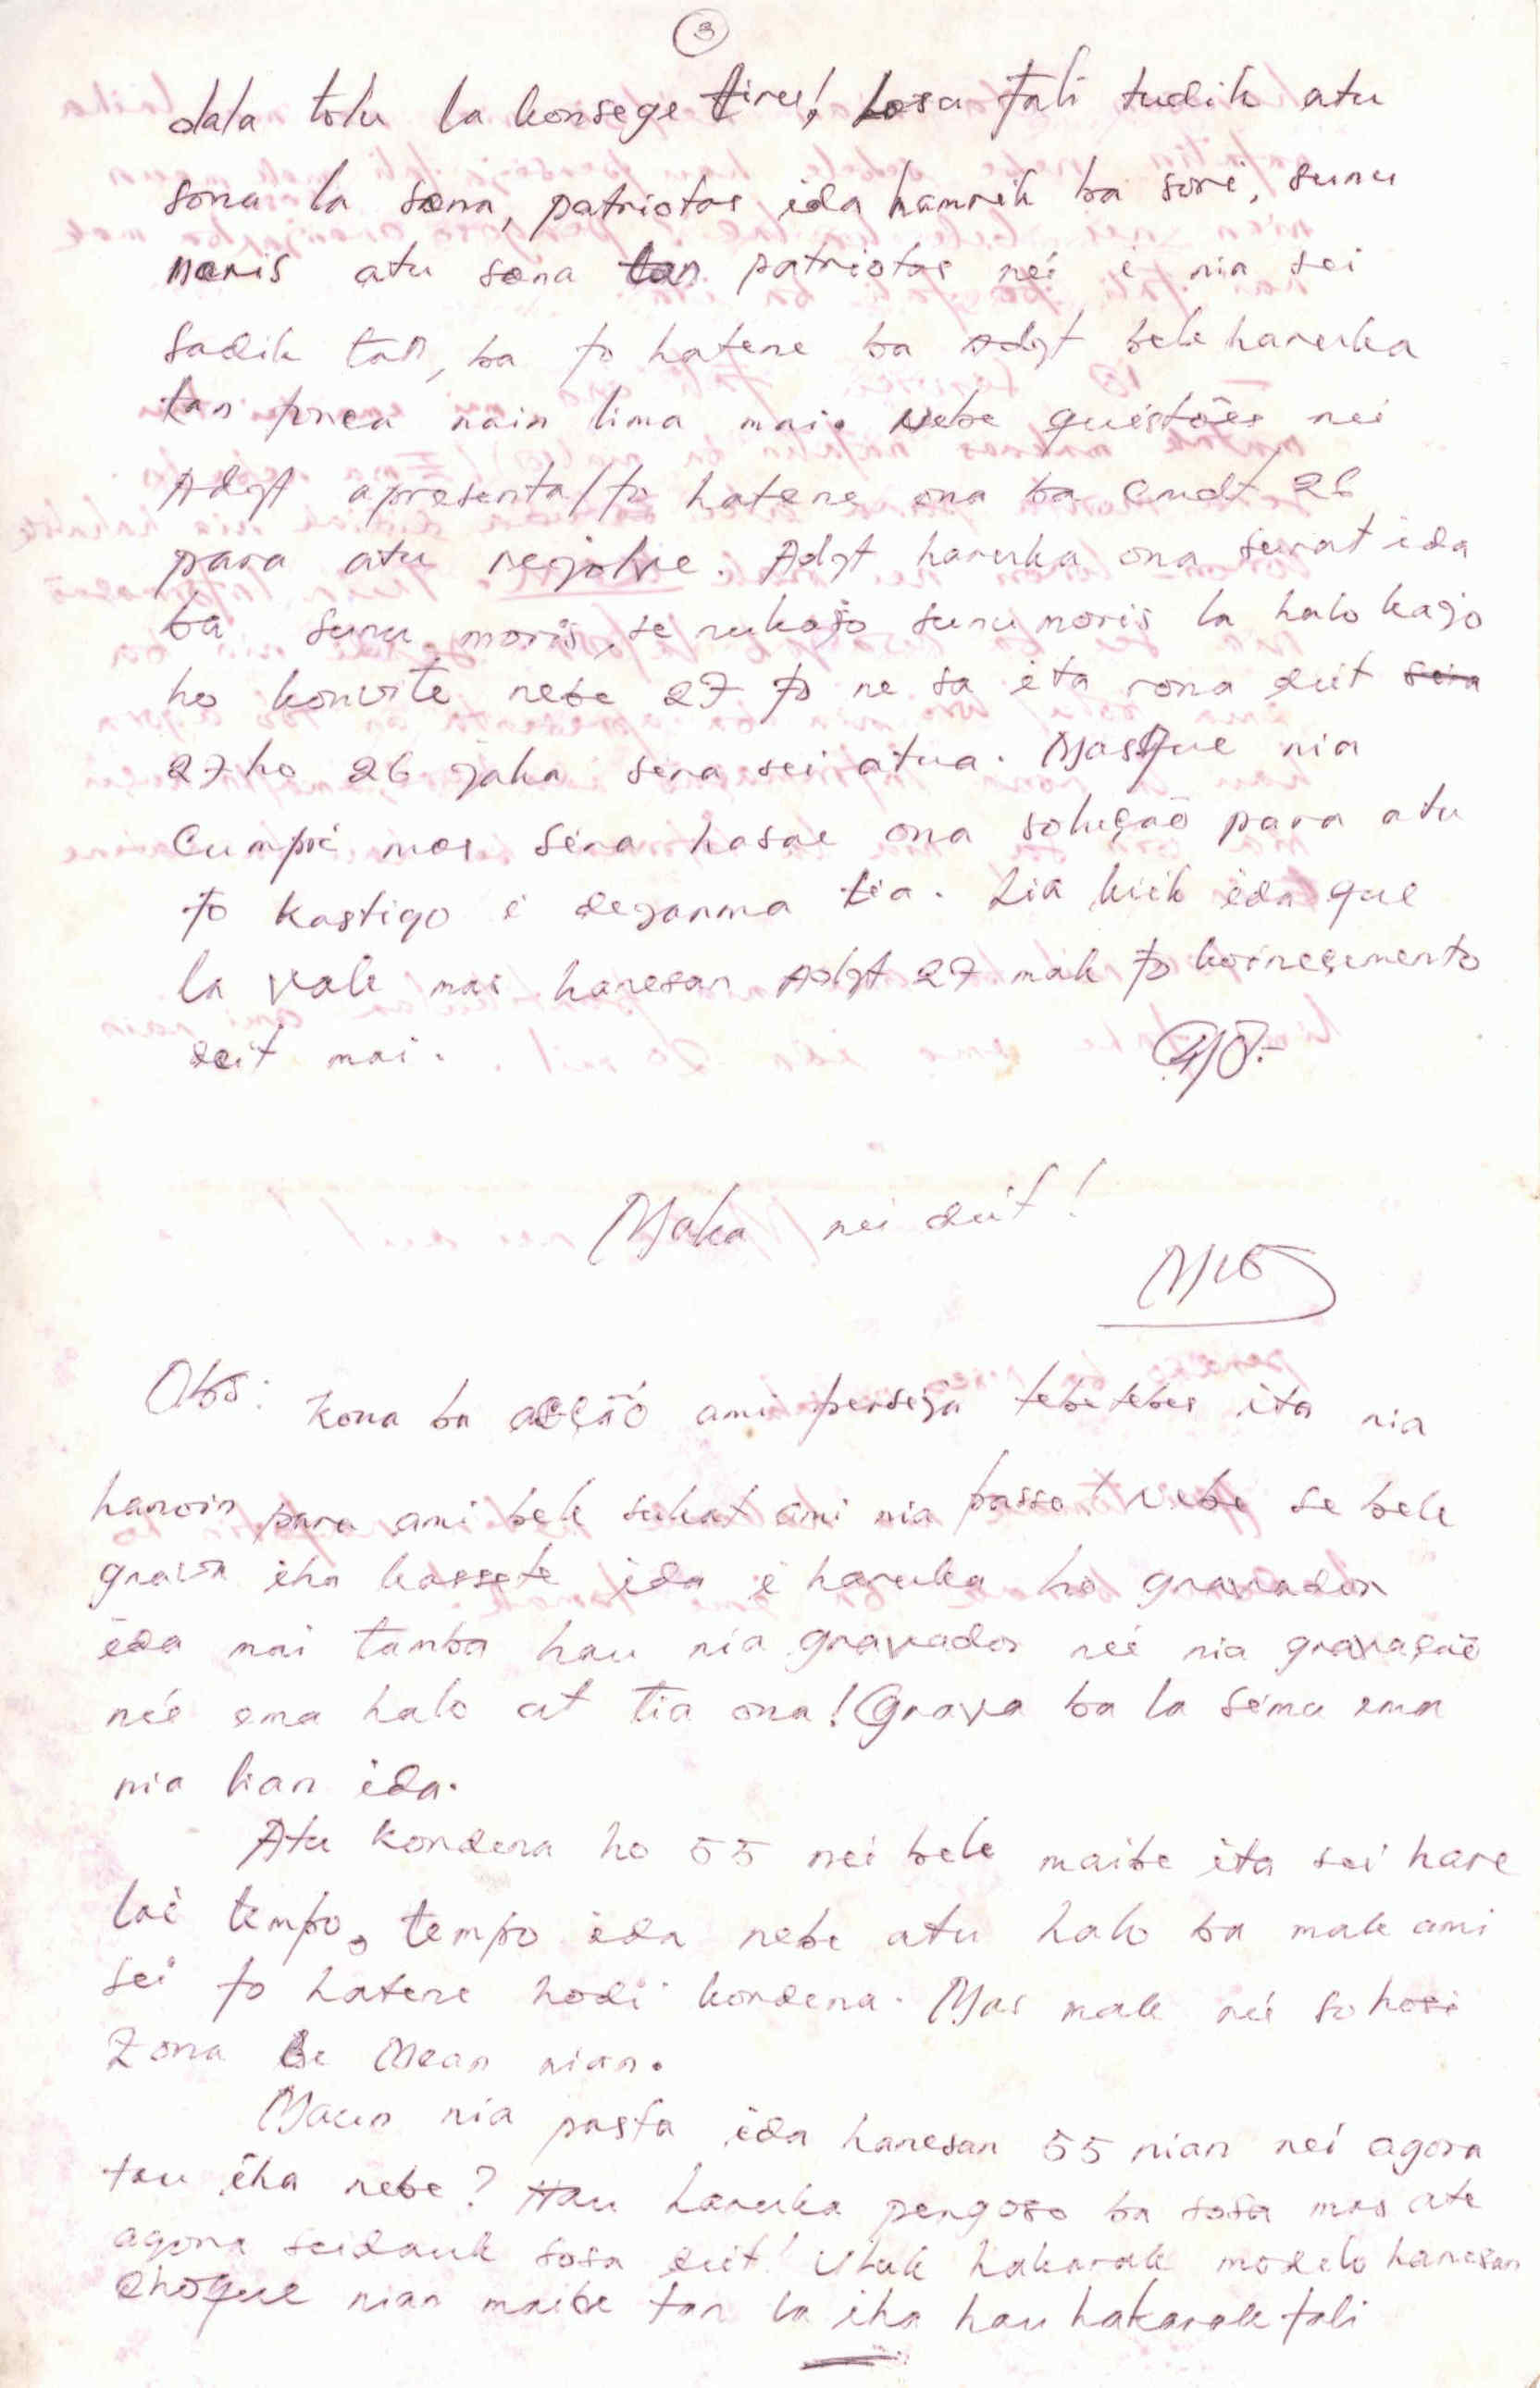 3
dala tolu la konsege tiru! Losu fali tudik atu
sona la sona, patriotas ida hamrik ba sori, sunu
moris atu sona tan patriotas nei i nia sei
sadik tan, ba fo hatene ba Adgt bele haruka
tan forca nain lima mai. Nebe questões nei
Adgt apresenta/fo hatene ona ba Cmdt 26
para atu rejolve. Adgt haruka ona surat ida
ba sunu moris, se nukajo sunu moris la halo kajo
ho konvite nebe 27 fo ne sa ita rona deit seia
27 ho 26 jaka sera sei atua. Masque nia
Cumpri mos sera hasae ona solução para atu
fo kastigo i dejanma tia. Lia kiik ida que
la vale mas hanesan Adgt 27 mak fo koinecemento
deit mai.
Maka nei deit!
Obs: Kona ba acção ami perseja tebetebes ita nia
hanoin para ami bele sukat ami nia passo! Nebe se bele
grava iha kassete ida i haruka ho gravador
ida mai tamba hau nia gravador neé nia gravação
neé ema halo at tia ona! Grava ba la simu ema
nia lian ida.
Atu kondena ho 55 nei bele maibe ita sei hare
lai tempo, tempo ida nebe atu halo ba mak ami
sei fo hatene hodi kondena. Mas mak nei so hosi
Zona Be Mean nian.
Maun nia pasta ida hanesan 55 nian nei agora
tau iha nebe? Hau haruka pengoso ba sosa mas ate
agora seidauk sosa deit! Uluk hakarak modelo hanesan
choque nian maibe tan la iha hau hakarak fali